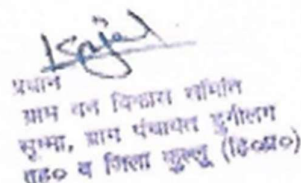 प्रधान
ग्राम वन विकास समिति
सुम्मा, ग्राम पंचायत डुगीलग
तह० व जिला कुल्लू (हि०प्र०)